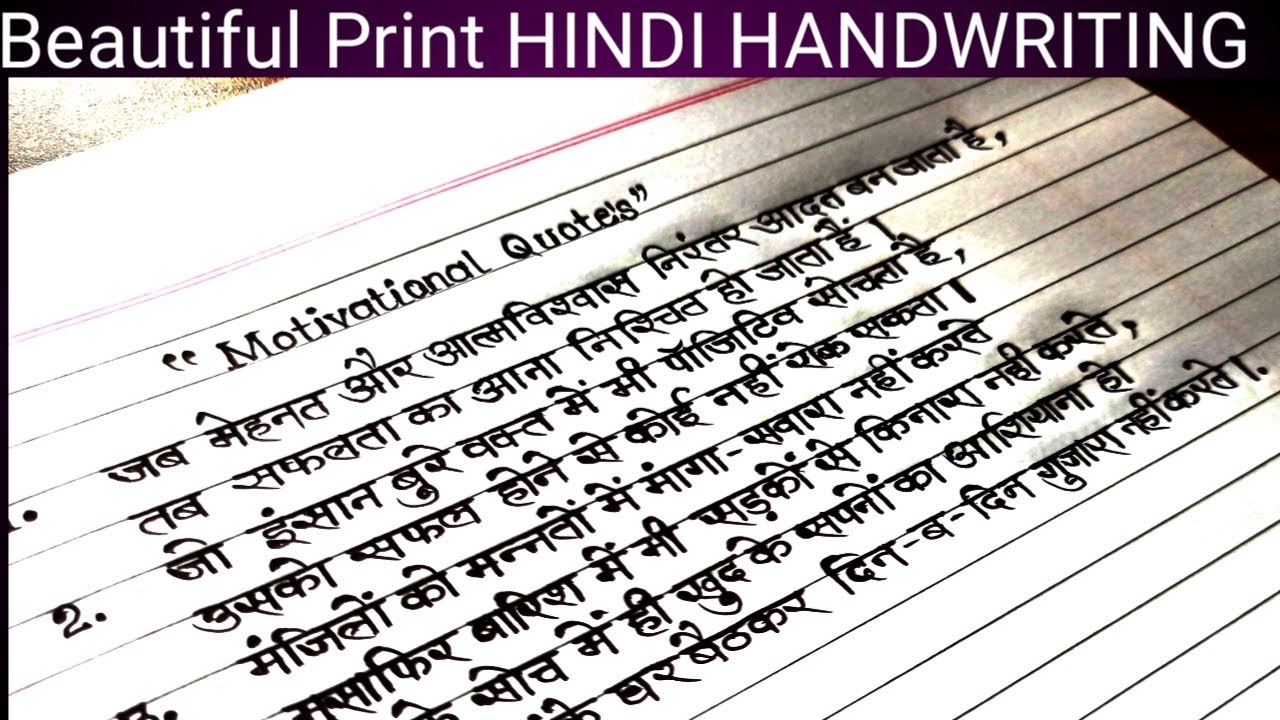 Beautiful Print HINDI HANDWRITING
“Motivational Quote's”
1. जब मेहनत और आत्मविश्वास निरंतर आदत बन जाता है,
तब सफलता का आना निश्चित हो जाता हैं ।
2. जो इंसान बुरे वक्त में भी पॉजिटिव सोचता है,
उसको सफल होने से कोई नहीं रोक सकता ।
3. मंजिलों को मन्नतों में मांगा-सवारा नहीं करते
मुसाफिर बारिश में भी सड़कों से किनारा नही करते,
सोच में ही खुद के सपनों का आशियाना हो
घर बैठकर दिन-ब-दिन गुजारा नहीं करते ।.